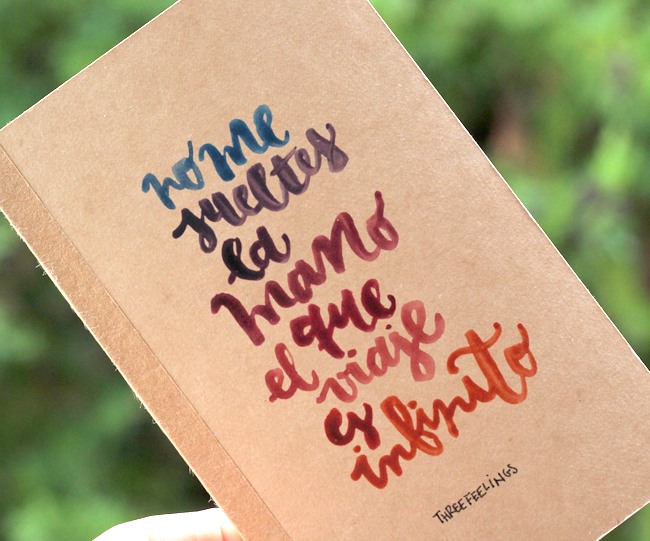 no me
sueltes
la
mano
que
el viaje
es
infinito
THREEFEELINGS